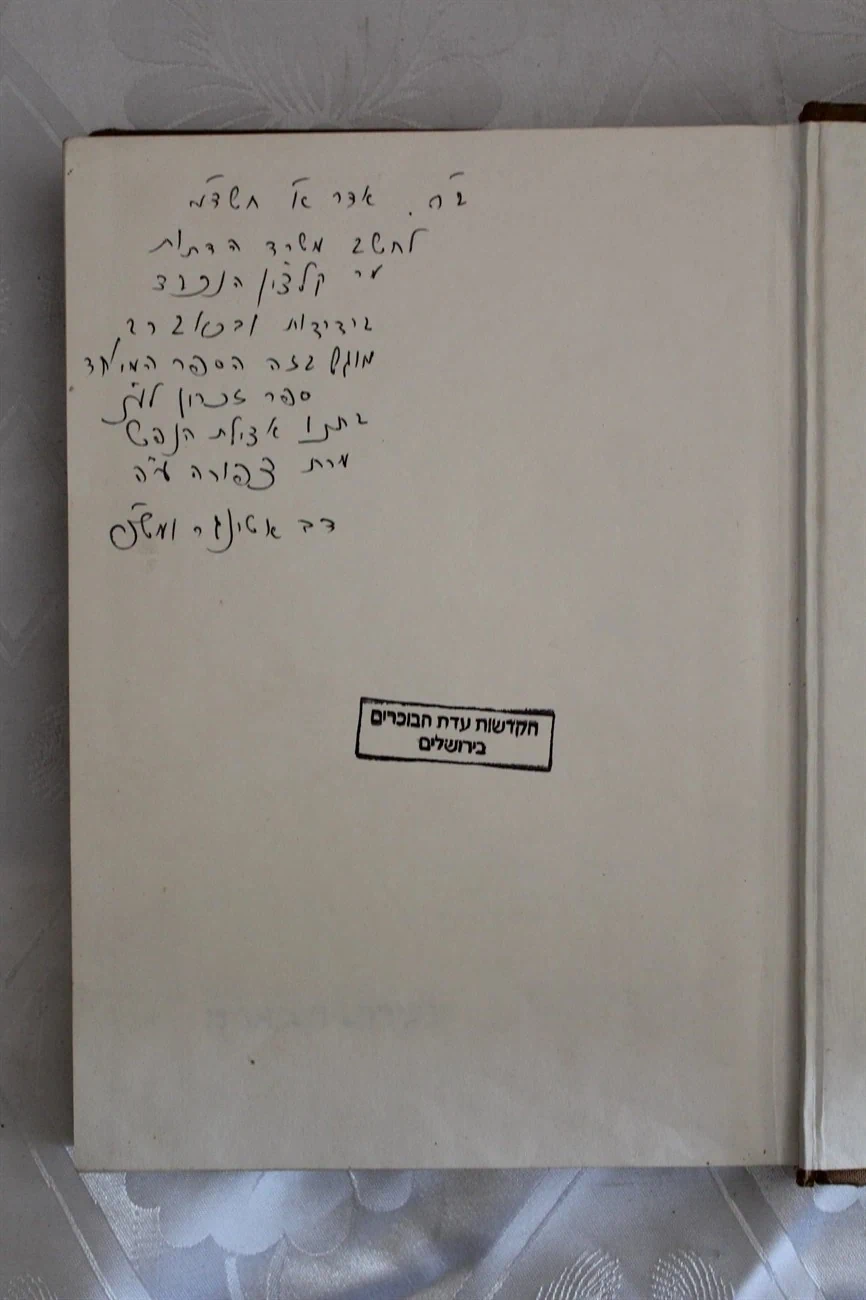 ב"ה. אדר א' תשד"מ
לחשב משרד הדתות
מר קלצ'ין הנכבד
בידידות ובכאב רב
מוגש בזה הספר המיוחד
ספר זכרון לע"נ
בתנו אצילת הנפש
מרת צפורה ע"ה
דב אטינגר ומשפ'
הקדשות עדת הבוכרים
בירושלים